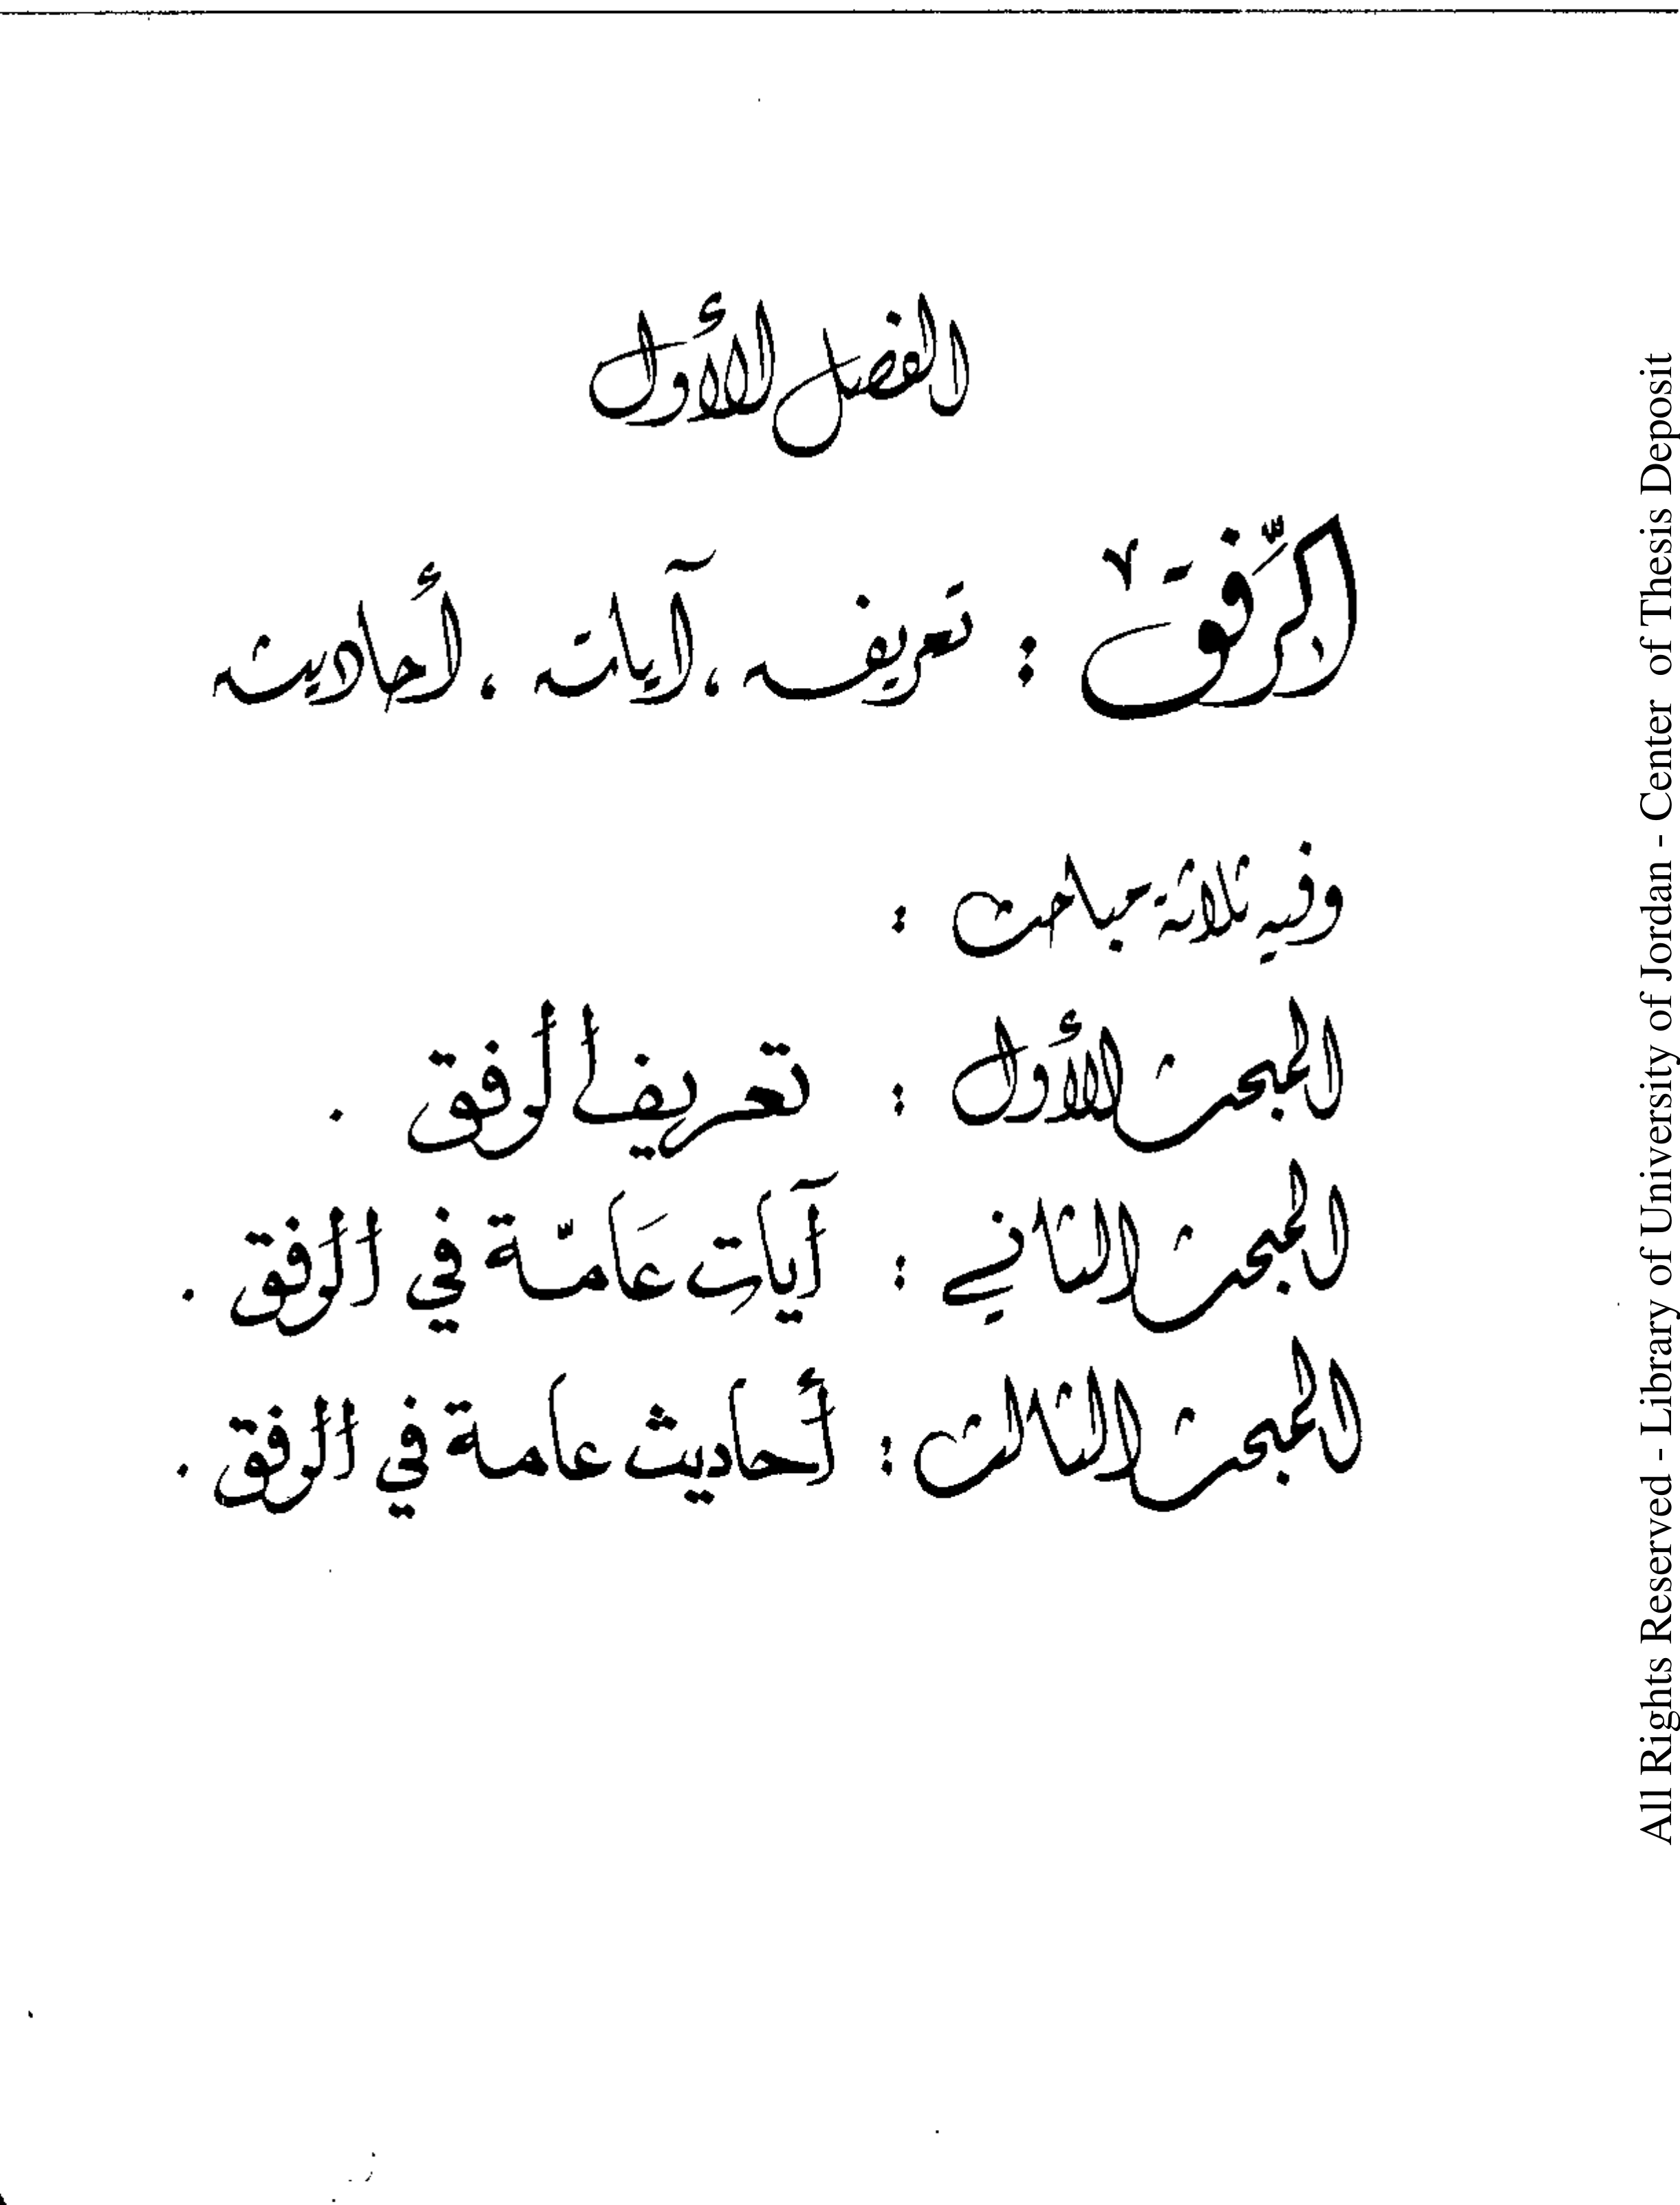 الفصل الأول
الرّفق : تعريف ، آيات ، أحاديث
وفيه ثلاثة مباحث :
المبحث الأول : تعريف الرفق .
المبحث الثاني : آيات عَامّة في الرفق .
المبحث الثالث : أحاديث عامة في الرفق .
All Rights Reserved - Library of University of Jordan - Center of Thesis Deposit